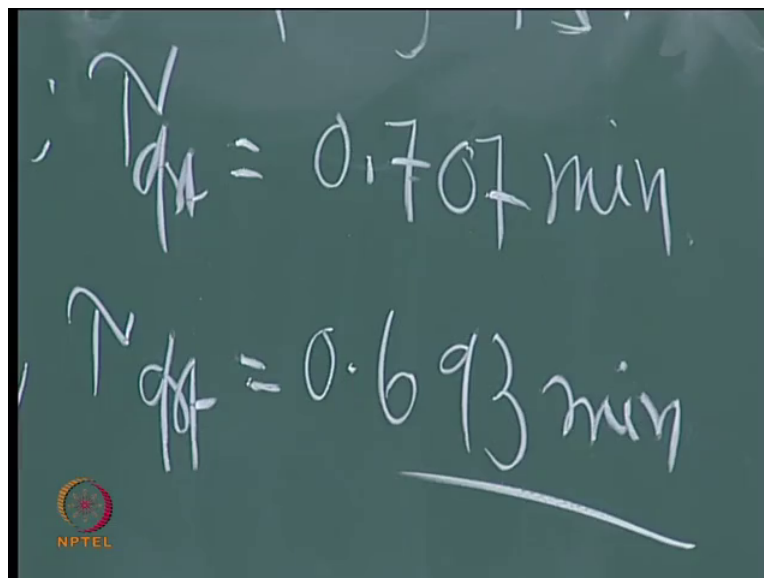 ; τ = 0.707 min.
τ = 0.693 min
NPTEL